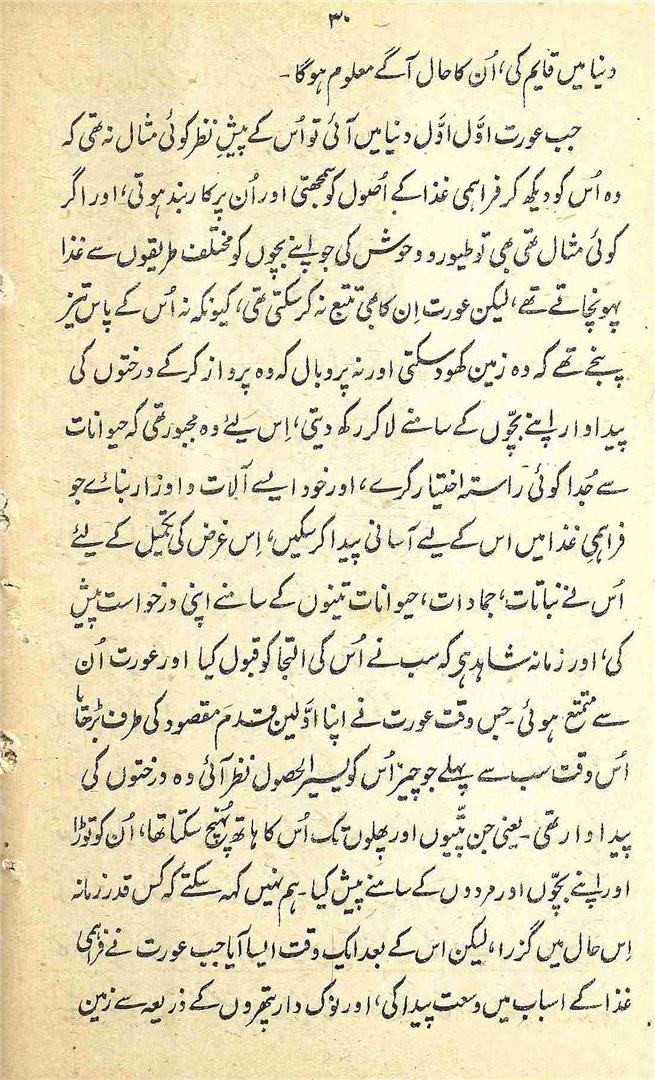 ۳۰
دنیا میں قایم کی، اُن کا حال آگے معلوم ہوگا۔
جب عورت اوَّل اوَّل دنیا میں آئی تو اُس کے پیشِ نظر کوئی مثال نہ تھی کہ
وہ اُس کو دیکھ کر فراہمی غذا کے اُصول کو سمجھتی اور اُن پر کاربند ہوتی، اور اگر
کوئی مثال تھی بھی تو طیور و وحوش کی جو اپنے بچوں کو مختلف طریقوں سے غذا
پہونچاتے تھے، لیکن عورت اِن کا بھی تتبع نہ کرسکتی تھی، کیونکہ نہ اُس کے پاس تیز
پنجے تھے کہ وہ زمین کھود سکتی اور نہ پر و بال کہ وہ پرواز کرکے درختوں کی
پیداوار اپنے بچّوں کے سامنے لاکر رکھ دیتی، اِس لیٔے وہ مجبور تھی کہ حیوانات
سے جُدا کوئی راستہ اختیار کرے، اور خود ایسے آلات و اوزار بناے جو
فراہمیِ غذا میں اس کے لیے آسانی پیدا کرسکیں، اِس غرض کی تکمیل کے لیٔے
اُس نے نباتات، جمادات، حیوانات تینوں کے سامنے اپنی درخواست پیش
کی، اور زمانہ شاہد ہی کہ سب نے اُس کی التجا کو قبول کیا اور عورت اُن
سے متمتع ہوئی۔ جس وقت عورت نے اپنا اوَّلین قدم مقصود کی طرف بڑھایا
اُس وقت سب سے پہلے جو چیز اُس کو یسیر الحصول نظر آئی وہ درختوں کی
پیداوار تھی۔ یعنی جن پتّیوں اور پھلوں تک اُس کا ہاتھ پہُنچ سکتا تھا، اُن کو توڑا
اور اپنے بچّوں اور مردوں کے سامنے پیش کیا۔ ہم نہیں کہہ سکتے کہ کس قدر زمانہ
اِس حال میں گزرا، لیکن اس کے بعد ایک وقت ایسا آیا جب عورت نے فراہمی
غذا کے اسباب میں وسعت پیدا کی، اور نوک دار پتھروں کے ذریعہ سے زمین